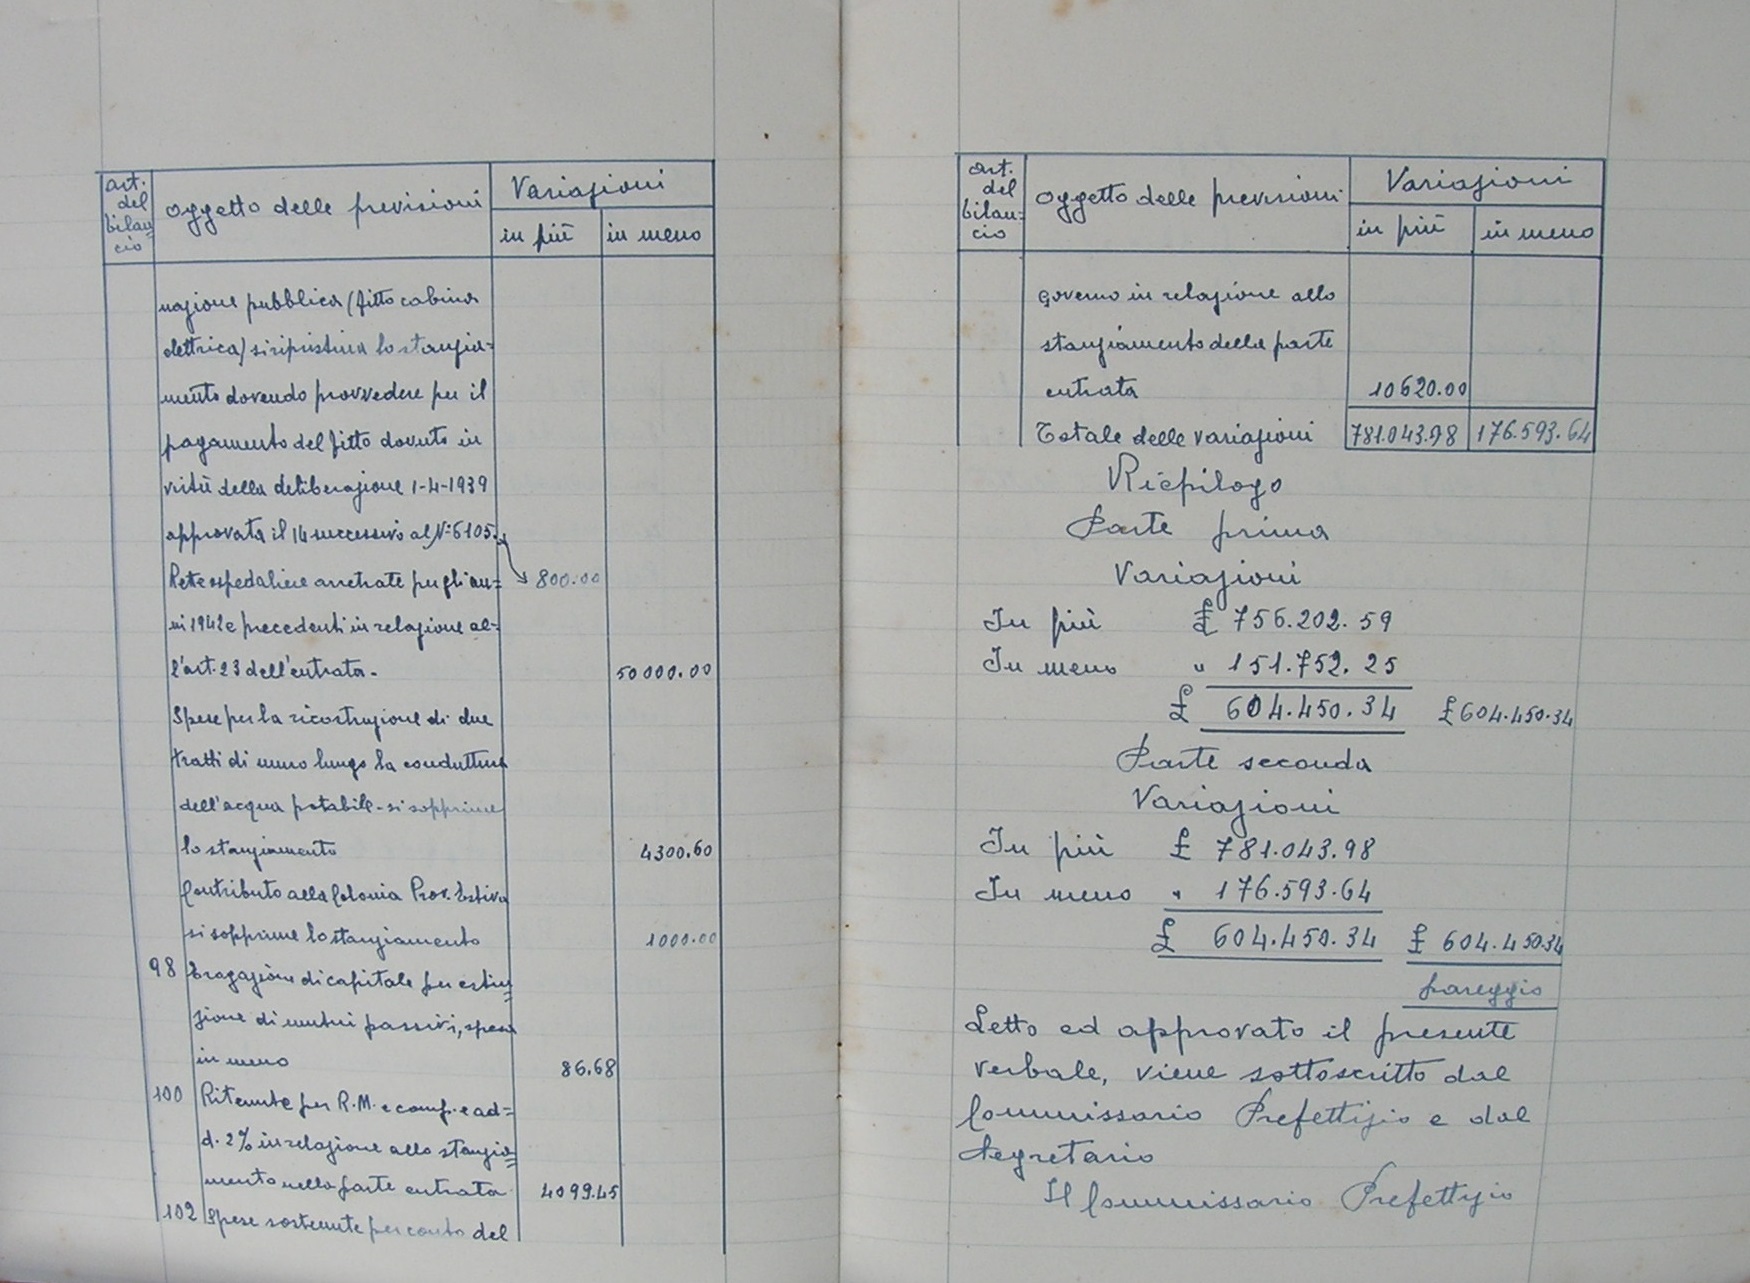 art. del bilan= cio
oggetto delle previsioni
Variazioni
in più
in meno
nazione pubblica (fitto cabina
elettrica) si ripristina lo stanzia=
mento dovendo provvedere per il
pagamento del fitto dovuto in
virtù della deliberazione 1-4-1939
approvata il 14 successivo al N° 6105.
Rette ospedaliere arretrate per gli an= 800.00
ni 1942 e precedenti in relazione al=
l'art. 23 dell'entrata - 50000.00
Spese per la ricostruzione di due
tratti di muro lungo la conduttura
dell'acqua potabile - si sopprime
lo stanziamento 4300.60
Contributo alla Colonia Prov. Estiva
si sopprime lo stanziamento 1000.00
98 Erogazione di capitale per estin=
zione di mutui passivi, spesa
in meno 86.68
100 Ritenute per R.M. e comp. e ad=
d. 2% in relazione allo stanzia=
mento nella parte entrata 4099.45
102 Spese sostenute per conto del
art. del bilan= cio
oggetto delle previsioni
Variazioni
in più
in meno
governo in relazione allo
stanziamento della parte
entrata 10620.00
Totale delle variazioni 781.043.98 176.593.64
Riepilogo
Parte prima
Variazioni
In più £ 756.202.59
In meno " 151.752.25
£ 604.450.34 £ 604.450.34
Parte seconda
Variazioni
In più £ 781.043.98
In meno " 176.593.64
£ 604.450.34 £ 604.450.34
pareggio
Letto ed approvato il presente
verbale, viene sottoscritto dal
Commissario Prefettizio e dal
Segretario
Il Commissario Prefettizio